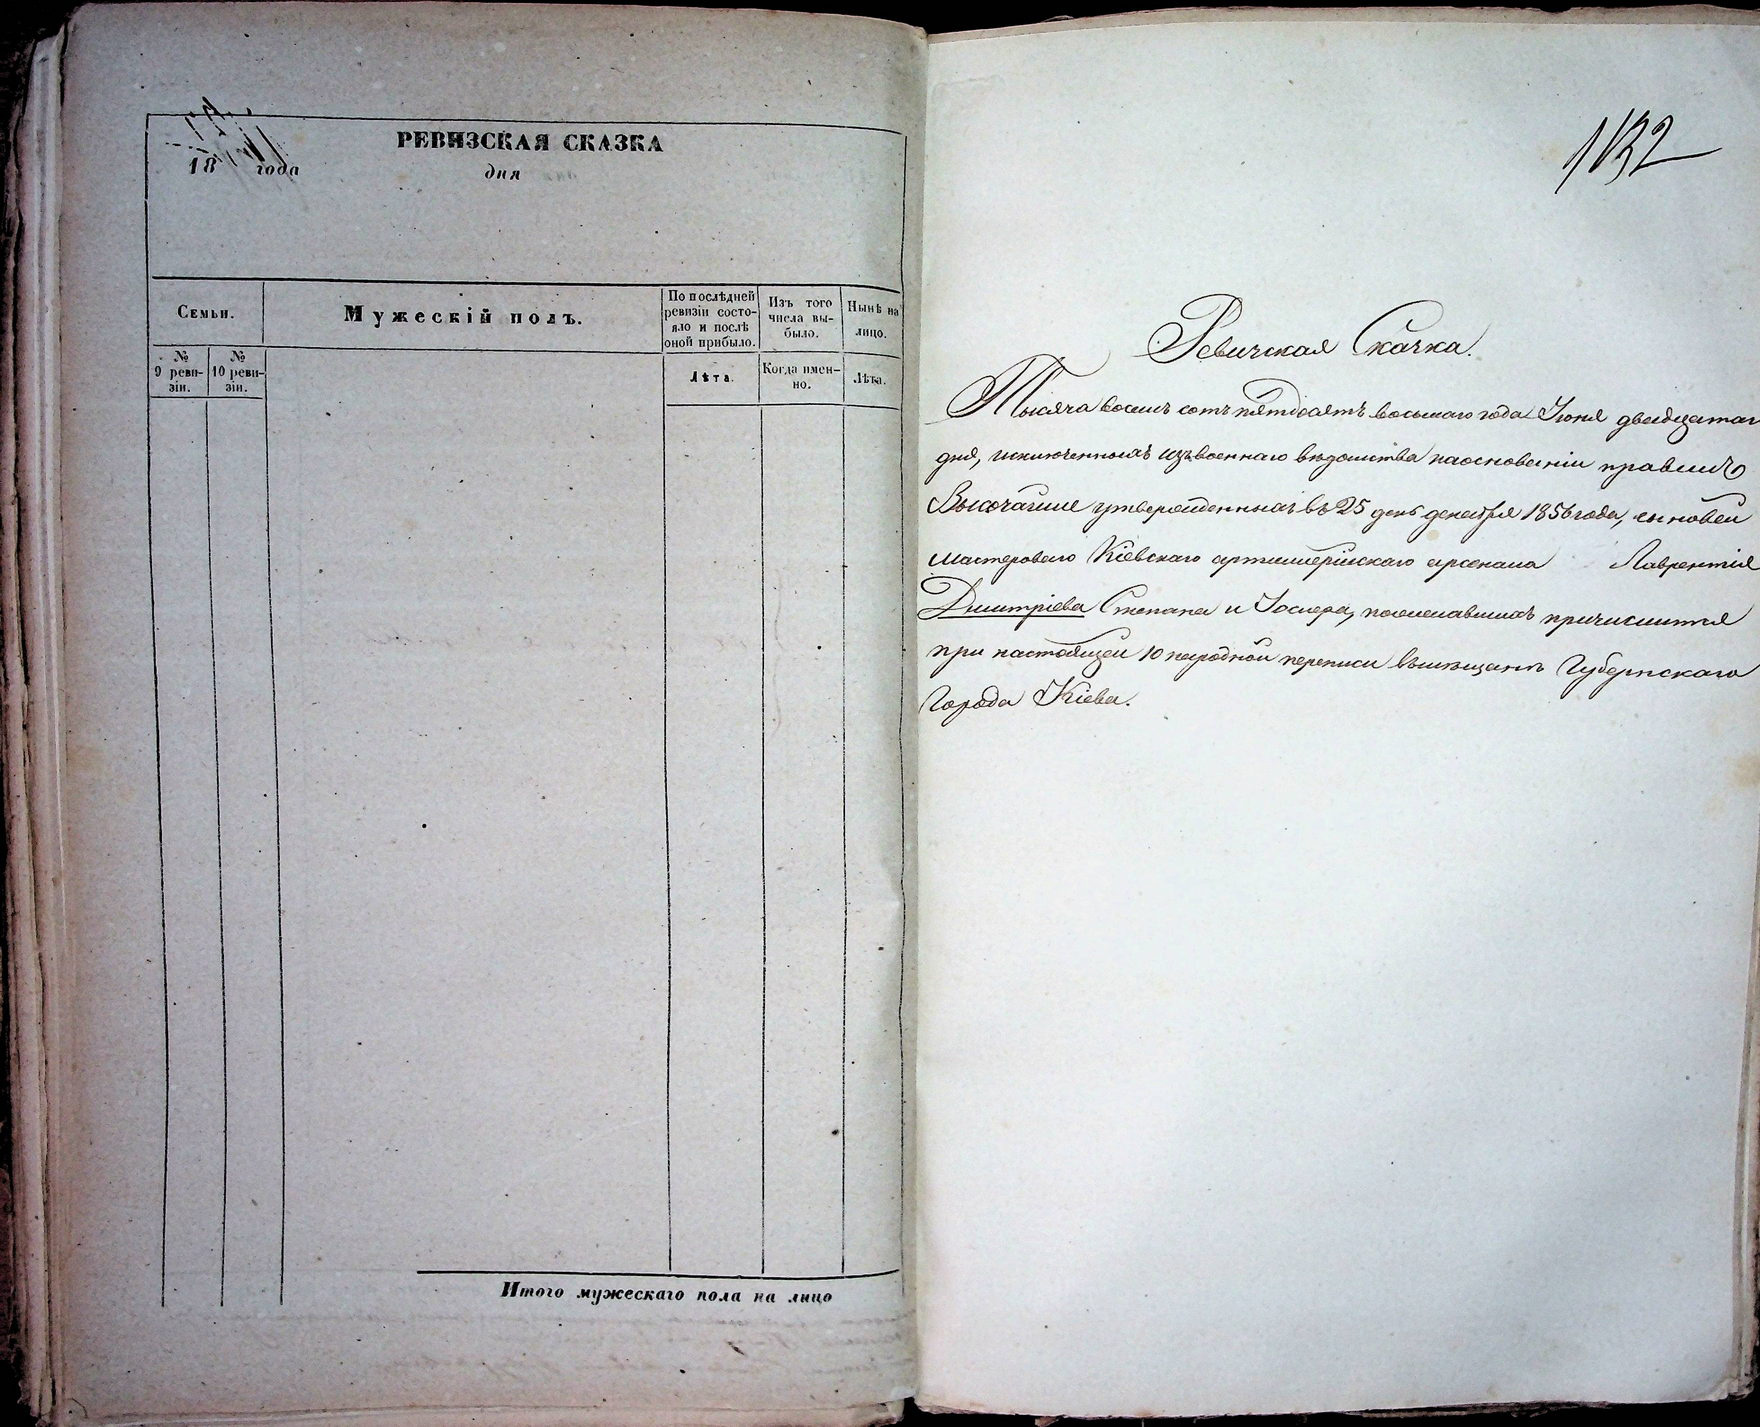 РЕВИЗСКАЯ СКАЗКА
18 года
дня
Семьи.
Мужескій полъ.
По послѣдней ревизіи состо-
яло и послѣ
оной прибыло.
Изъ того
числа вы-
было.
Нынѣ на
лицо.
№
9 реви-
зіи.
№
10 реви-
зіи.
Лѣта.
Когда имен-
но.
Лѣта.
Итого мужескаго пола на лицо
1132
Ревизская Сказка.
Тысяча восемь сотъ пятдесятъ восьмаго года Іюня двадцатаго
дня, исключенныхъ изъ военнаго вѣдомства на основаніи правилъ
Высочайше утвержденныхъ въ 25 день декабря 1856 года, сыновей
мастероваго Кіевскаго артиллерійскаго арсенала Лаврентія
Дмитріева Степана и Іосифа, пожелавшихъ причислится
при настоящей 10 народной переписи въ мѣщане Губернскаго
Города Кіева.